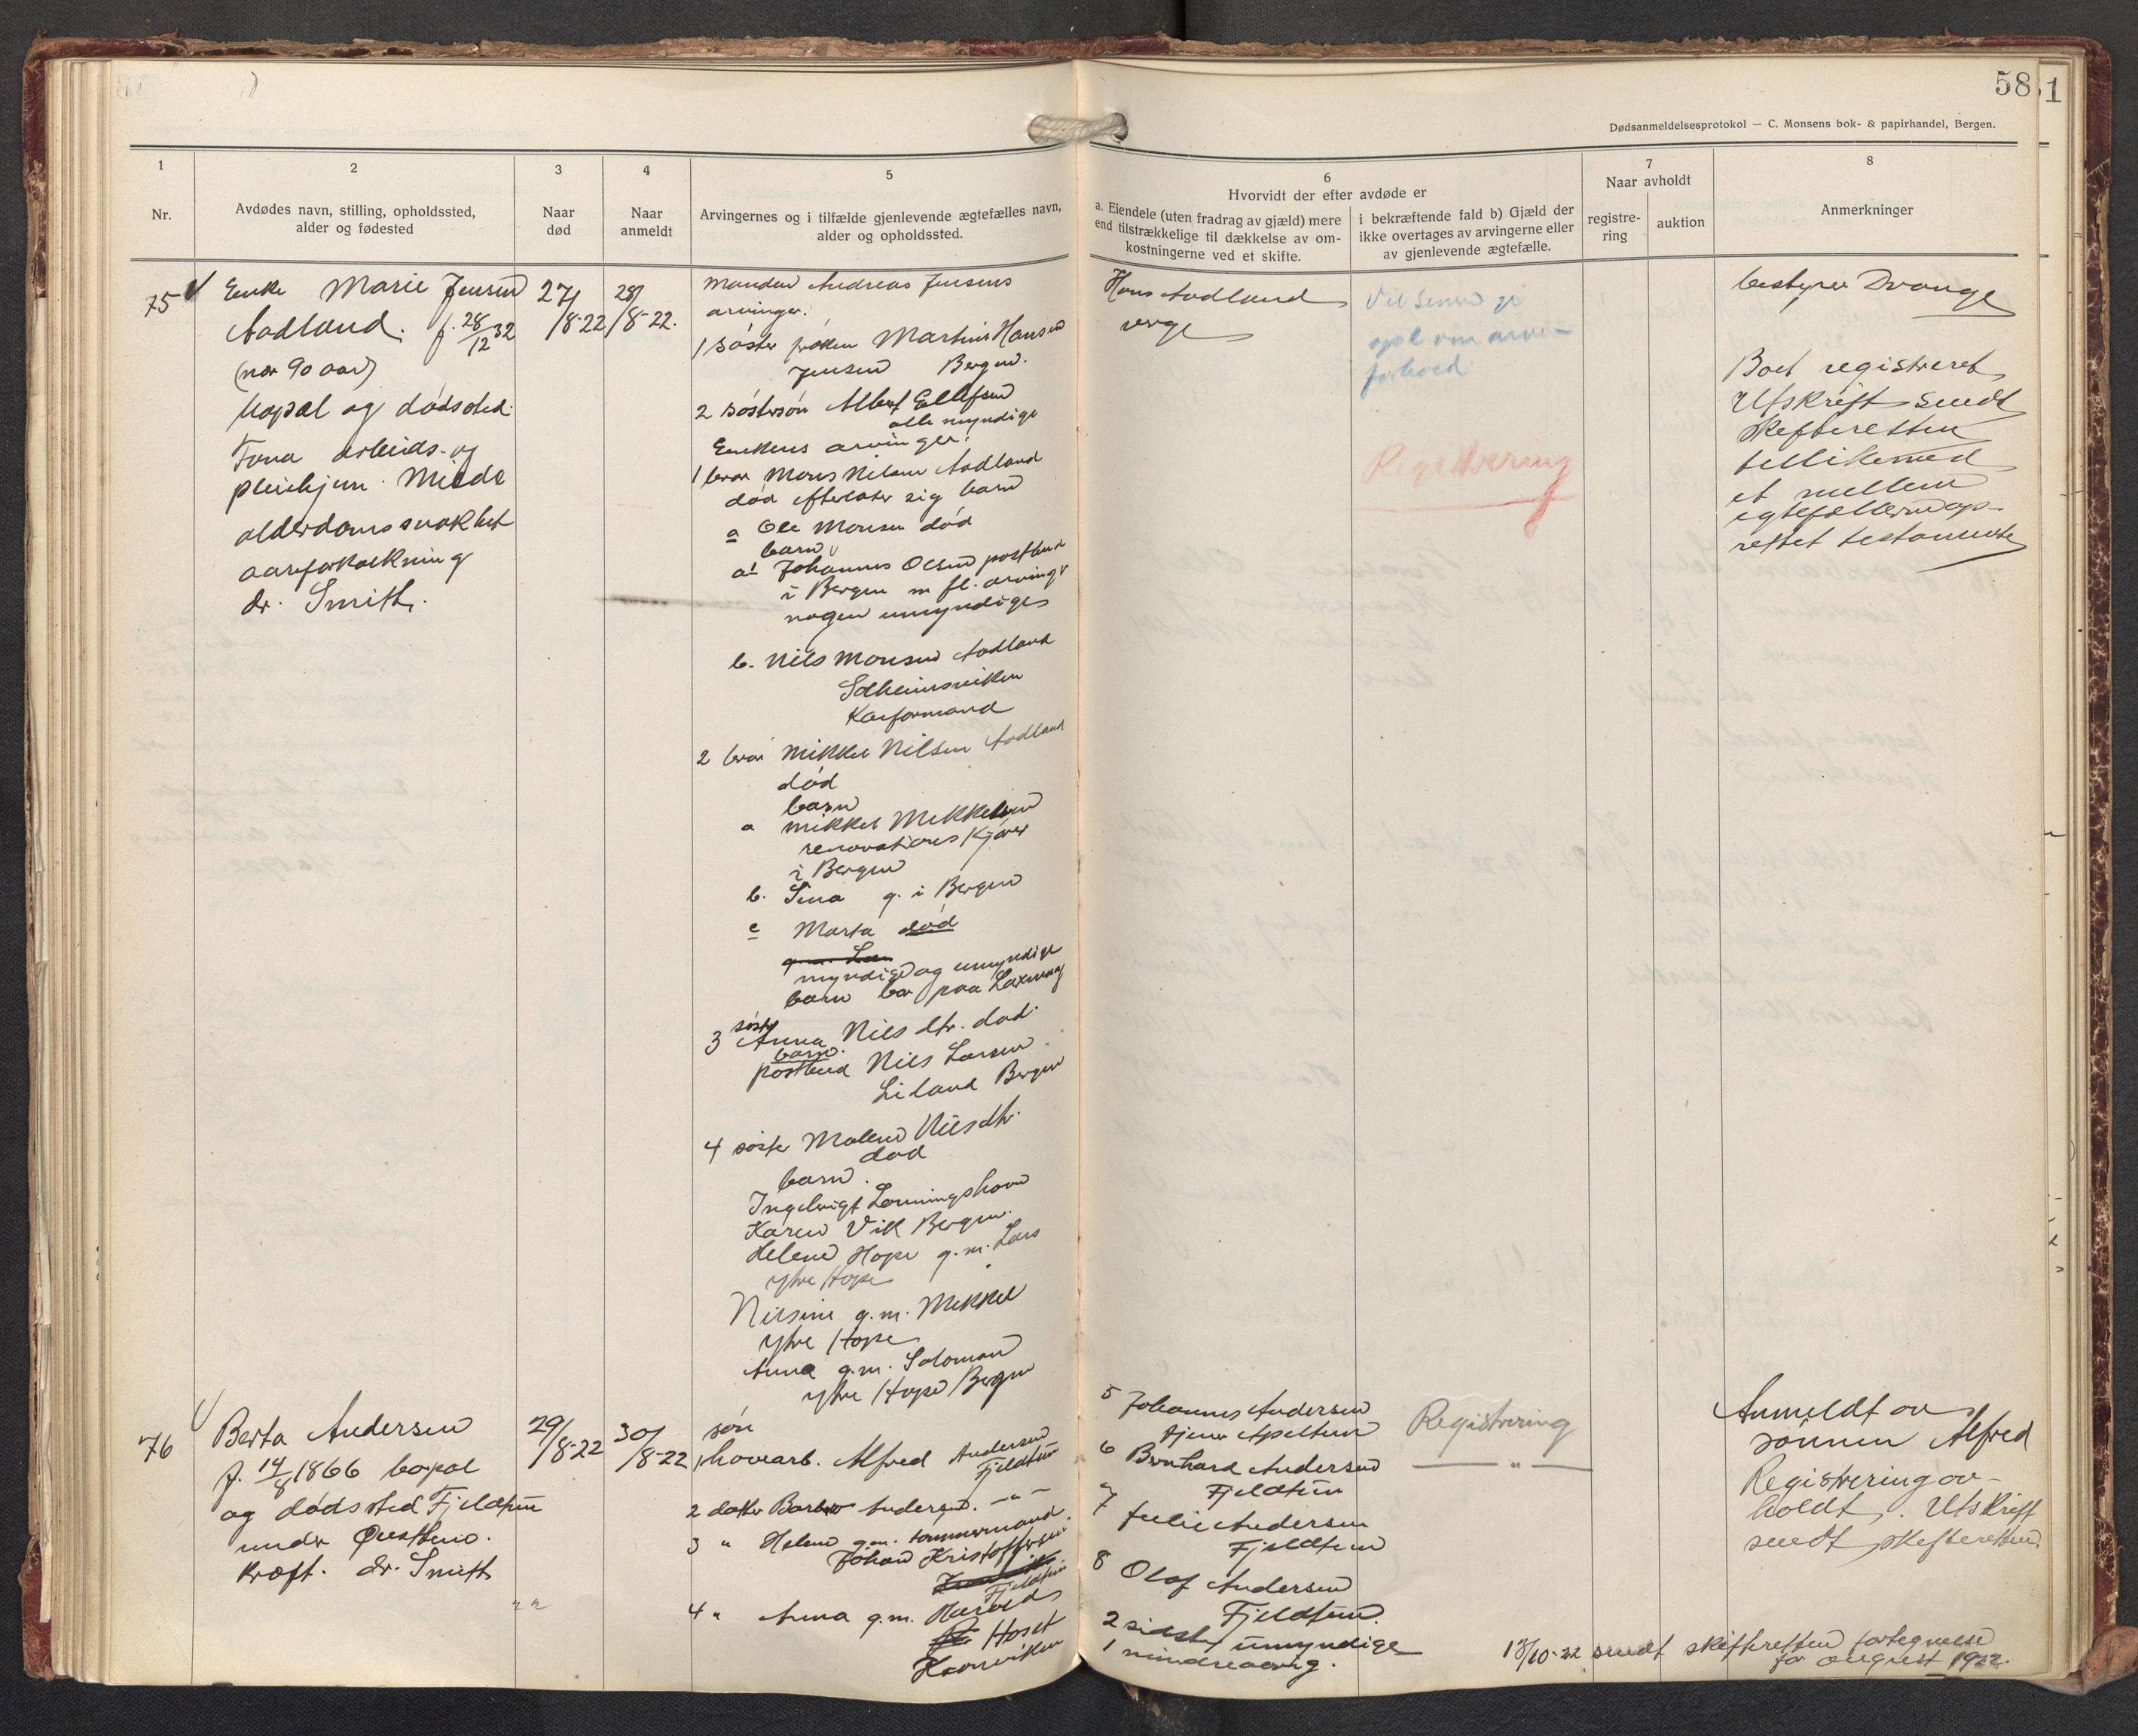 58
1
Dødsanmeldelsesprotokol — C. Monsens bok- & papirhandel, Bergen.
1
Nr.
2
Avdødes navn, stilling, opholdssted,
alder og fødested
3
Naar
død
4
Naar
anmeldt
5
Arvingernes og i tilfælde gjenlevende ægtefælles navn,
alder og opholdssted.
6
Hvorvidt der efter avdøde er
a. Eiendele (uten fradrag av gjæld) mere
end tilstrækkelige til dækkelse av om-
kostningerne ved et skifte.
i bekræftende fald b) Gjæld der
ikke overtages av arvingerne eller
av gjenlevende ægtefælle.
7
Naar avholdt
registre-
ring
auktion
8
Anmerkninger
75
Enke Marie Jensen
Aadland. f. 28/12 32
(nær 90 aar)
bopæl og dødssted
Fana arbeids- og
pleiehjem. Milde
alderdomssvakhet
aareforkalkning
dr. Smith.
27/8-22
28/8-22.
Manden Andreas Jensens
arvinger.
1 søster frøken Martine Hansen
Jensen Bergen.
2 søstersøn Albert Ellefsen
alle myndige
Enkens arvinger:
1 bror Mons Nilsen Aadland
død efterlater sig barn
a Ole Monsen død
barn
a1 Johannes Olsen postbud
i Bergen m fl. arvinger
nogen umyndige
b. Nils Monsen Aadland
Solheimsviken
Kaiformand
2 bror Mikkel Nilsen Aadland
død
barn
a Mikkel Mikkelsen
renovationskjører
i Bergen
b. Sina g. i Bergen
c Marta død
myndige og umyndige
barn bor paa Laxevaag
3 søster Anna Nilsdtr. død
barn.
postbud Nils Larsen
Liland Bergen
4 søster Malene Nilsdtr.
død
barn.
Ingebrigt Lønningshavn
Karen Vik Bergen.
Helene Hope g.m. Lars
ytre Hope
Nilsine g.m. Mikkel
ytre Hope
Anna g.m. Salomon
ytre Hope Bergen
Hans Aadland
verge
Vil senere gi
opl om arve-
forhold
Registrering
bestyrer Drange
Boet registreret
Utskrift sendt
skifteretten
tillikemed
et mellem
egtefællerne op-
rettet testamente
76
Berta Andersen
f. 14/8 1866 bopæl
og dødssted Fjeldtun
under Øvsttun.
kræft. dr. Smith
29/8-22
30/8-22
søn
1 hovearb. Alfred Andersen
Fjeldtun
2 datter Andersen. — " —
3 " Helene g.m. tømmermand
Johan Kristoffersen
Fjeldtun
4 " Anna g.m. Harald
Hoset
5 Johannes Andersen
tjener Apeltun
6 Bernhard Andersen
Fjeldtun
7 Julie Andersen
Fjeldtun
8 Olaf Andersen
Fjeldtun.
2 sidste umyndige
1 mindreaarig.
Registrering
— " —
Anmeldt av
sønnen Alfred
Registrering av-
holdt. Utskrift
sendt skifteretten.
13/10-22 sendt skifteretten fortegnelse
for august 1922.